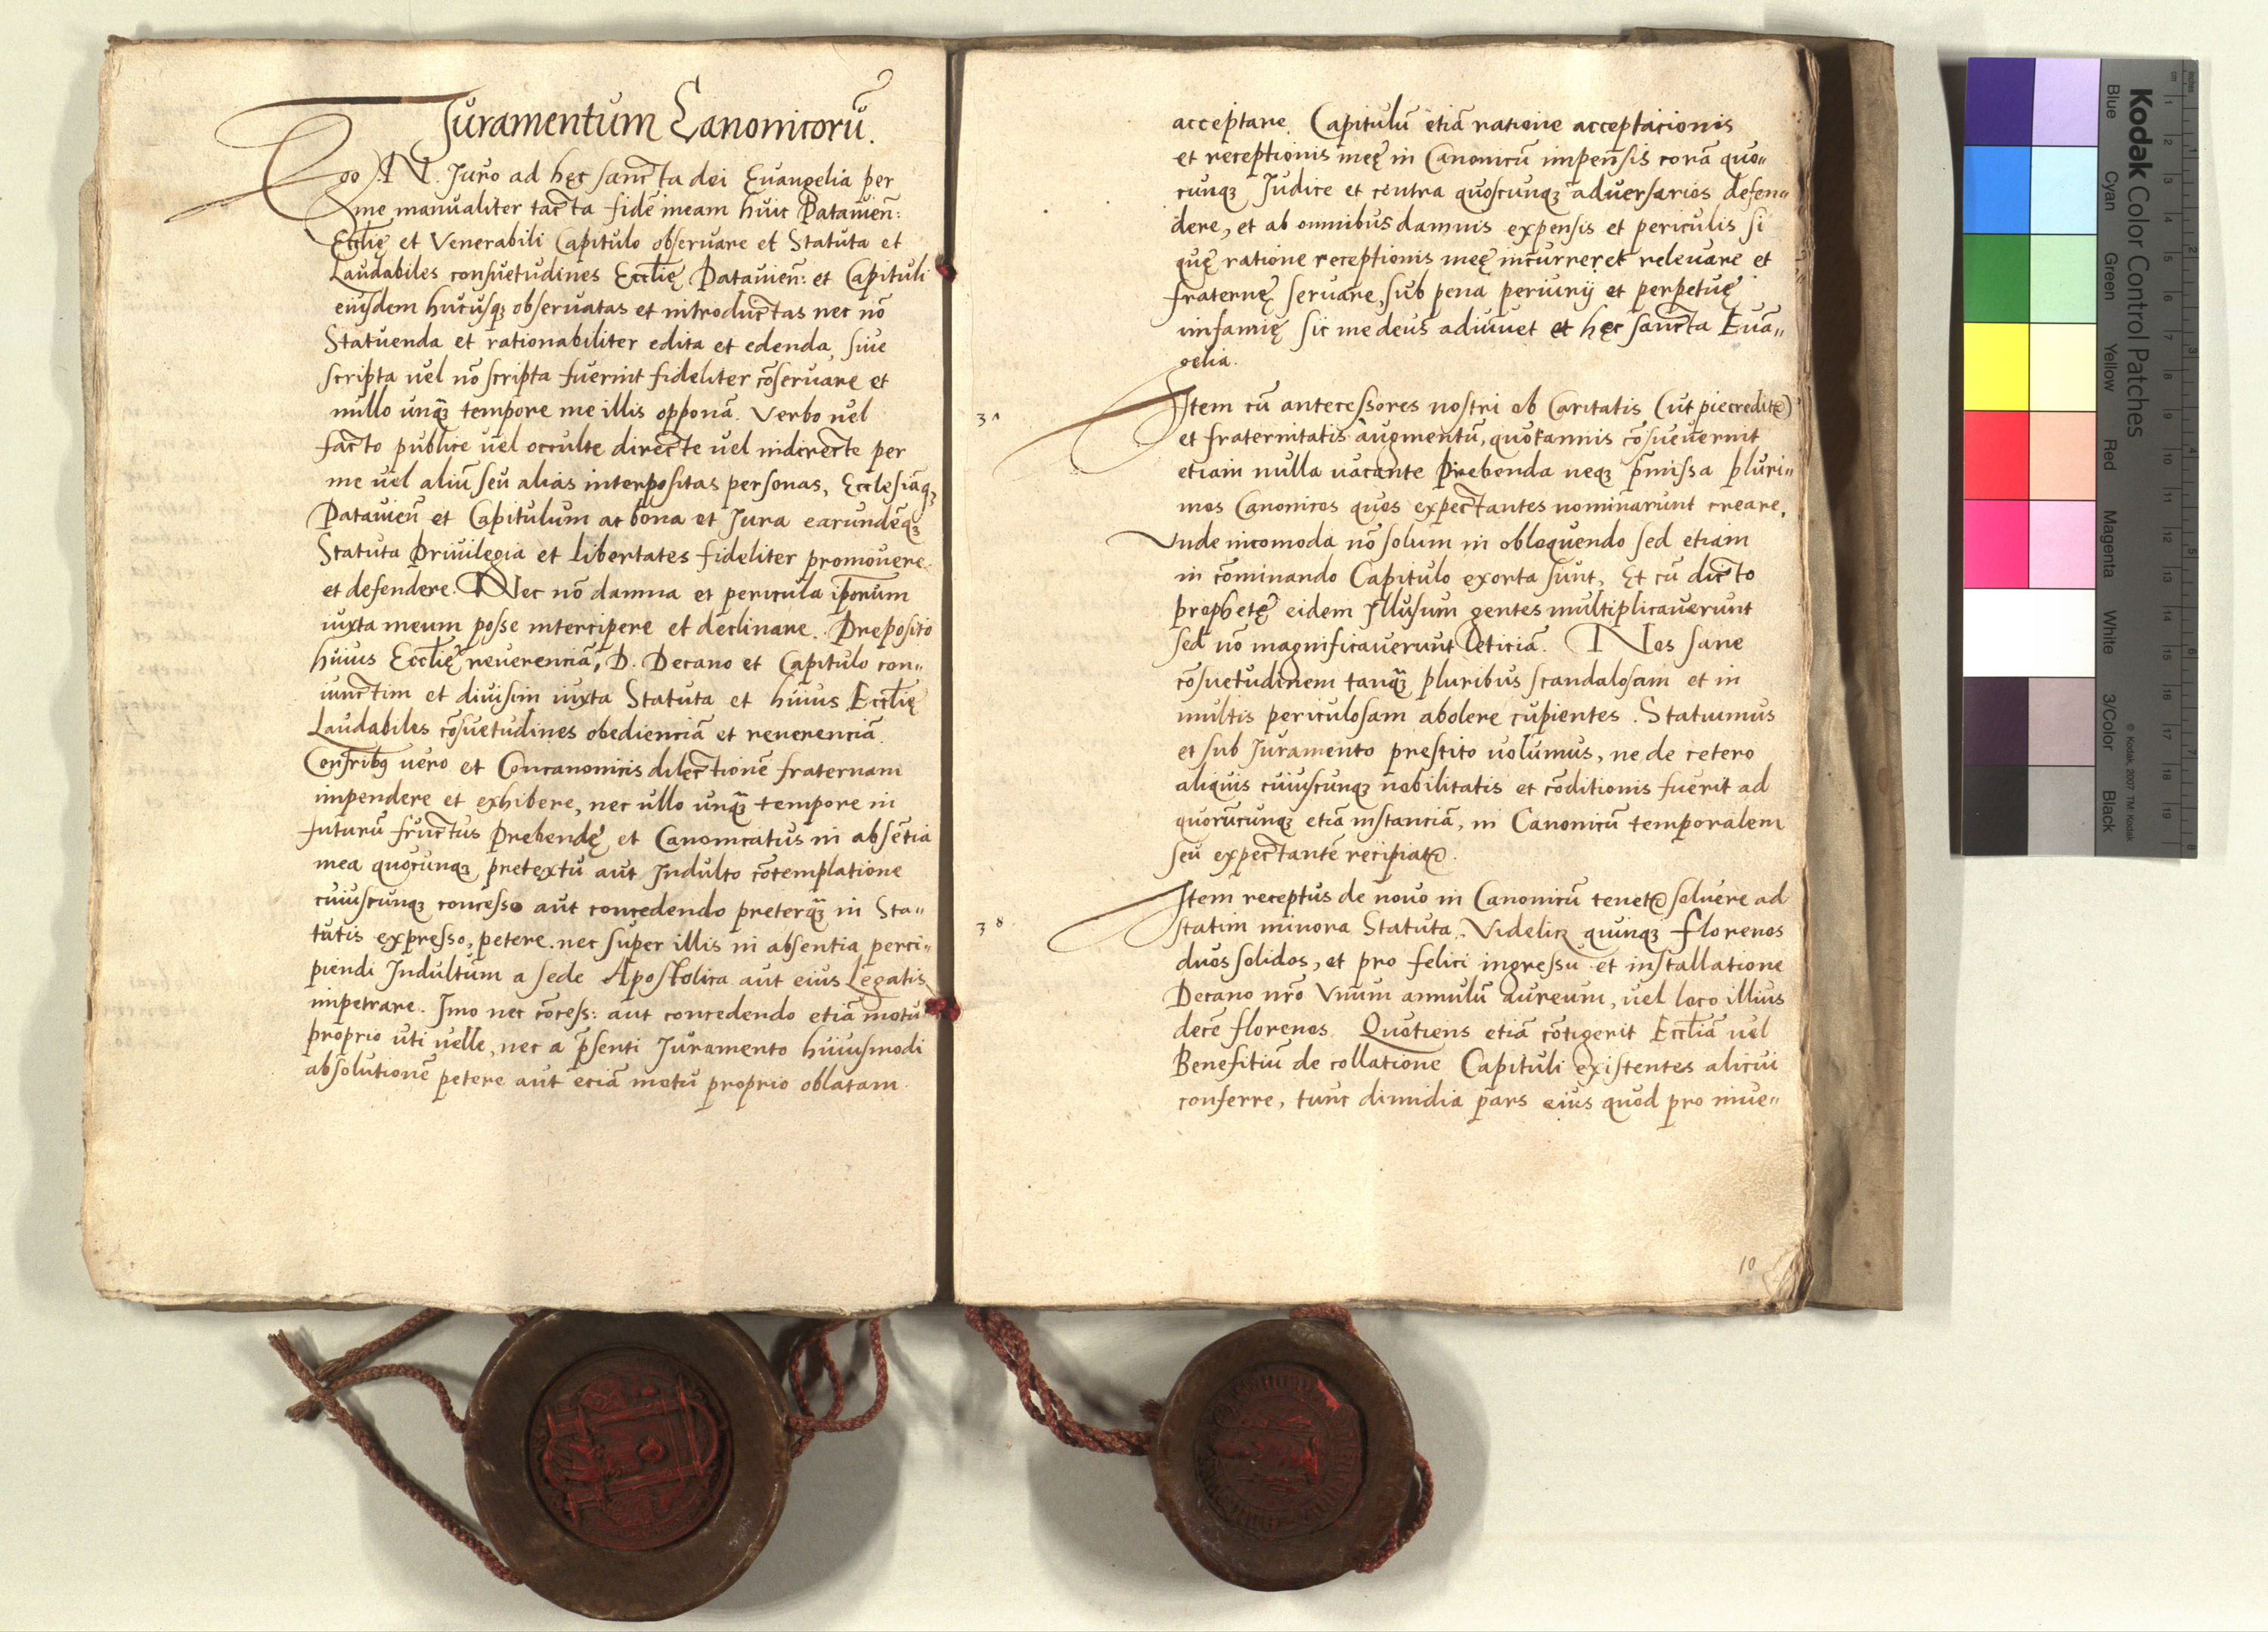 Juramentum Canonicorū.
Ego .N. Juro ad hęc sancta dei Euangelia per
me manualiter tacta fidē meam huic Patauien̄:
Eccłię et Venerabili Capitulo obseruare et Statuta et
Laudabiles consuetudines Eccłię Patauien̄: et Capituli
eiusdem hucusqꝫ obseruatas et introductas nec nō
Statuenda et rationabiliter edita et edenda, siue
scripta uel nō scripta fuerint fideliter cōseruare et
nullo unq̄ꝫ tempore me illis opponā. Verbo uel
facto publice uel occulte directe uel indirecte per
me uel aliū seu alias interpositas personas, Ecclesiāqꝫ
Patauien̄ et Capitulum ac bona et Jura earundēqꝫ
Statuta Priuilegia et libertates fideliter promouere
et defendere. Nec nō damna et pericula ip̄orum
iuxta meum posse intercipere et declinare. Preposito
huius Eccłię reuerenciā, D. Decano et Capitulo con„
iunctim et diuisim iuxta Statuta et huius Eccłię
Laudabiles cōsuetudines obedienciā et reuerenciā.
Confribꝯ uero et Concanonicis dilectionē fraternam
impendere et exhibere, nec ullo unq̄ꝫ tempore in
futurū fructus Prebendę et Canonicatus in absētia
mea quocunqꝫ pretextu aut Indulto cōtemplatione
cuiuscunqꝫ concesso aut concedendo preterq̄ꝫ in Sta„
tutis expresso, petere. nec super illis in absentia perci„
piendi Indultum a sede Apostolica aut eius Legatis
impetrare. Imo nec cōcess: aut concedendo etiā motu
proprio uti uelle, nec a p̄senti Juramento huiusmodi
absolutionē petere aut eciā motu proprio oblatam
acceptare. Capitulū etiā ratione acceptacionis
et receptionis meę in Canonicū impensis corā quo„
cunqꝫ Judice et contra quoscunqꝫ aduersarios defen„
dere, et ab omnibus damnis expensis et periculis si
quę ratione receptionis meę incurreret releuare et
fraternę seruare, sub pena periurij et perpetuę
infamię sic me deus adiuuet et hęc sancta Euā„
gelia.
37
Item cū antecessores nostri ob Caritatis (ut pie creditᷣ)
et fraternitatis augmentū, quotannis cōsueuerint
etiam nulla uacante Prebenda neqꝫ p̄missa pluri„
mos Canonicos quos expectantes nominarunt creare,
Vnde incomoda nō solum in obloquendo sed etiam
in cōminando Capitulo exorta sunt, Et cū dicto
prophetę eidem Illusum gentes multiplicauerunt
sed nō magnificauerunt leticiā. Nos sane
cōsuetudinem tanq̄ꝫ pluribus scandalosam et in
multis periculosam abolere cupientes. Statuimus
et sub Juramento prestito uolumus, ne de cetero
aliquis cuiuscunqꝫ nobilitatis et cōditionis fuerit ad
quorūcunqꝫ etiā instanciā, in Canonicū temporalem
seu expectantē recipiatᷣ.
38
Item receptus de nouo in Canonicū tenetᷣ soluere ad
statim minora Statuta. Videliꝫ quinqꝫ florenos
duos solidos, et pro felici ingressu et installatione
Decano nr̄o Vnum annulū aureum, uel loco illius
decē florenos. Quotiens etiā cōtigerit Eccłiā uel
Benefitiū de collatione Capituli existentes alicui
conferre, tunc dimidia pars eius quod pro inue„
10
Kodak Color Control Patches
Blue
Cyan
Green
Yellow
Red
Magenta
White
3/Color
Black
© Kodak, 2007 TM: Kodak
cm 1 2 3 4 5 6 7 8 9 10 11 12 13 14 15 16 17 18 19
inches 1 2 3 4 5 6 7 8